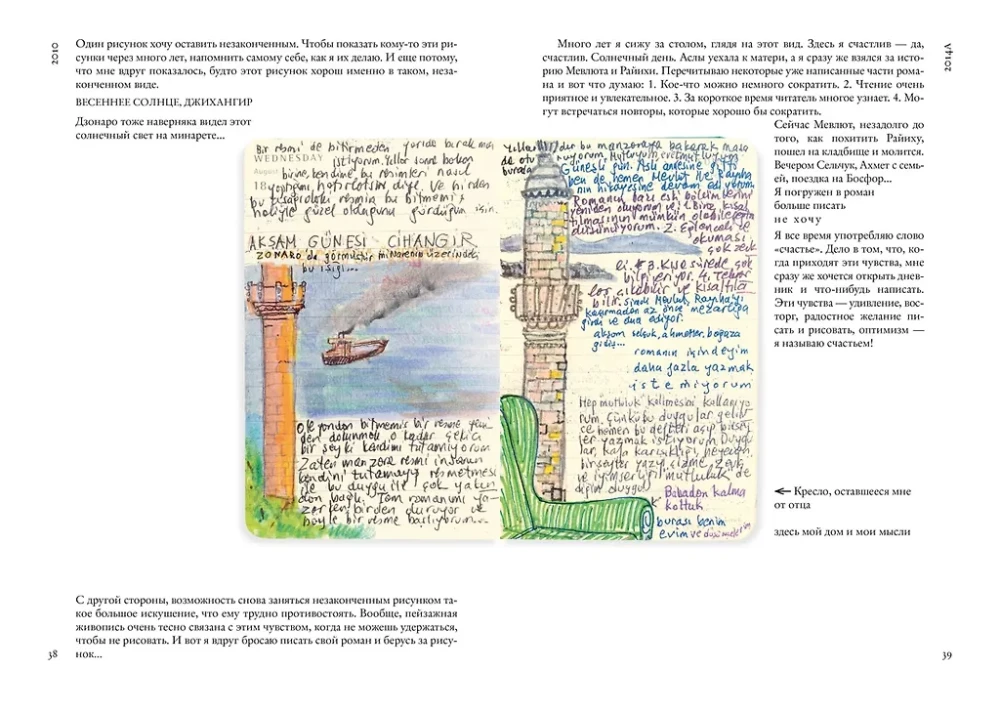 2010
Один рисунок хочу оставить незаконченным. Чтобы показать кому-то эти ри-
сунки через много лет, напомнить самому себе, как я их делаю. И еще потому,
что мне вдруг показалось, будто этот рисунок хорош именно в таком, неза-
конченном виде.
ВЕСЕННЕЕ СОЛНЦЕ, ДЖИХАНГИР
Дзонаро тоже наверняка видел этот
солнечный свет на минарете...
Bir resmi de bitirmeden yarıda bırakma
WEDNESDAY istiyorum. Yıllar sonra bakan
August
birine, kendime bu resimleri nasıl
18 yaptığımı hatırlatsın diye. Ve birden
bu tasarıdaki resmin bu bitmemiş
haliyle güzel olduğunu gördüğüm için.
AKŞAM GÜNEŞİ CİHANGİR
ZONARO da görmüştür minarenin üzerindeki
bu ışığı...
Öte yandan bitmemiş bir resme yeni
den dokunmak o kadar çekici
bir şey ki kendimi tutamıyorum
Zaten manzara resmi insanın
kendini tutamayıp resmetmesi
ile bu duygu ile çok yakın
dan bağlı. Tam romanımı ya-
zarken birden duruyor ve
böyle bir resme başlıyorum..
С другой стороны, возможность снова заняться незаконченным рисунком та-
кое большое искушение, что ему трудно противостоять. Вообще, пейзажная
живопись очень тесно связана с этим чувством, когда не можешь удержаться,
чтобы не рисовать. И вот я вдруг бросаю писать свой роман и берусь за рису-
нок...
38
2014А
Много лет я сижу за столом, глядя на этот вид. Здесь я счастлив — да,
счастлив. Солнечный день. Аслы уехала к матери, а я сразу же взялся за исто-
рию Мевлюта и Райихи. Перечитываю некоторые уже написанные части рома-
на и вот что думаю: 1. Кое-что можно немного сократить. 2. Чтение очень
приятное и увлекательное. 3. За короткое время читатель многое узнает. 4. Мо-
гут встречаться повторы, которые хорошо бы сократить.
Сейчас Мевлют, незадолго до
того, как похитить Райиху,
пошел на кладбище и молится.
Вечером Сельчук, Ахмет с семь-
ей, поездка на Босфор...
Я погружен в роман
больше писать
не хочу
Я все время употребляю слово
«счастье». Дело в том, что, ко-
гда приходят эти чувства, мне
сразу же хочется открыть днев-
ник и что-нибудь написать.
Эти чувства — удивление, вос-
торг, радостное желание пи-
сать и рисовать, оптимизм —
я называю счастьем!
Yıllardır bu manzaraya bakarak masa
da otu ruyorum. Mutluyum evet mutluyum
burada Güneşli gün. Aslı annesine gitti
ben de hemen Mevlut ile Rayiha
nın hikayesine devam ediyorum.
Romanın bazı eski bölümlerini
yeniden okuyorum ve 1. Biraz kısal
tılmasının mümkün olabileceğini
düşünüyorum. 2. Eğlenceli ve
okuması
çok zevk
li. 3. Kısa sürede çok
bilgi veriyor. 4. Tekrar
lar çıkabilir ve kısaltıla
bilir. Şimdi Mevlut, Rayiha'yı
kaçırmadan az önce mezarlığa
girdi ve dua ediyor.
akşam selçuk, ahmetler, boğaza
gidiş...
romanın içindeyim
daha fazla yazmak
istemiyorum
Hep mutluluk kelimesini kullanıyo
rum. Çünkü bu duygular gelin
ce hemen bu defteri açıp bir şey
ler yazmak istiyorum. Duygu
lar, kafa karışıklığı, heyecan,
birşeyler yazıp çizme zevki
ve iyimserliği mutluluk de
diğim duygu!
Babadan kalma
koltuk
burası benim
evim ve düşüncelerim
← Кресло, оставшееся мне
от отца
здесь мой дом и мои мысли
39